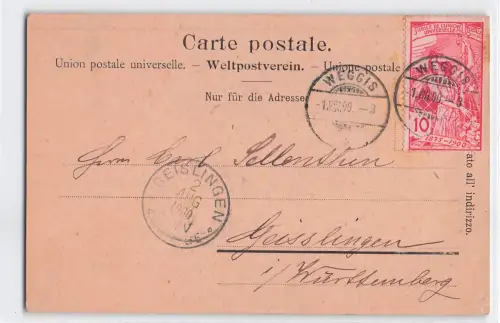 Carte postale.
Union postale universelle. – Weltpostverein. – Unione postale
Nur für die Adresse
lato all' indirizzo.
WEGGIS
-1.VIII.00.–8
WEGGIS
-1.VIII.00.–8
10
1875–1900
Herrn Carl
Geisslingen
i/Württemberg
GEISLINGEN
2
AUG
1900